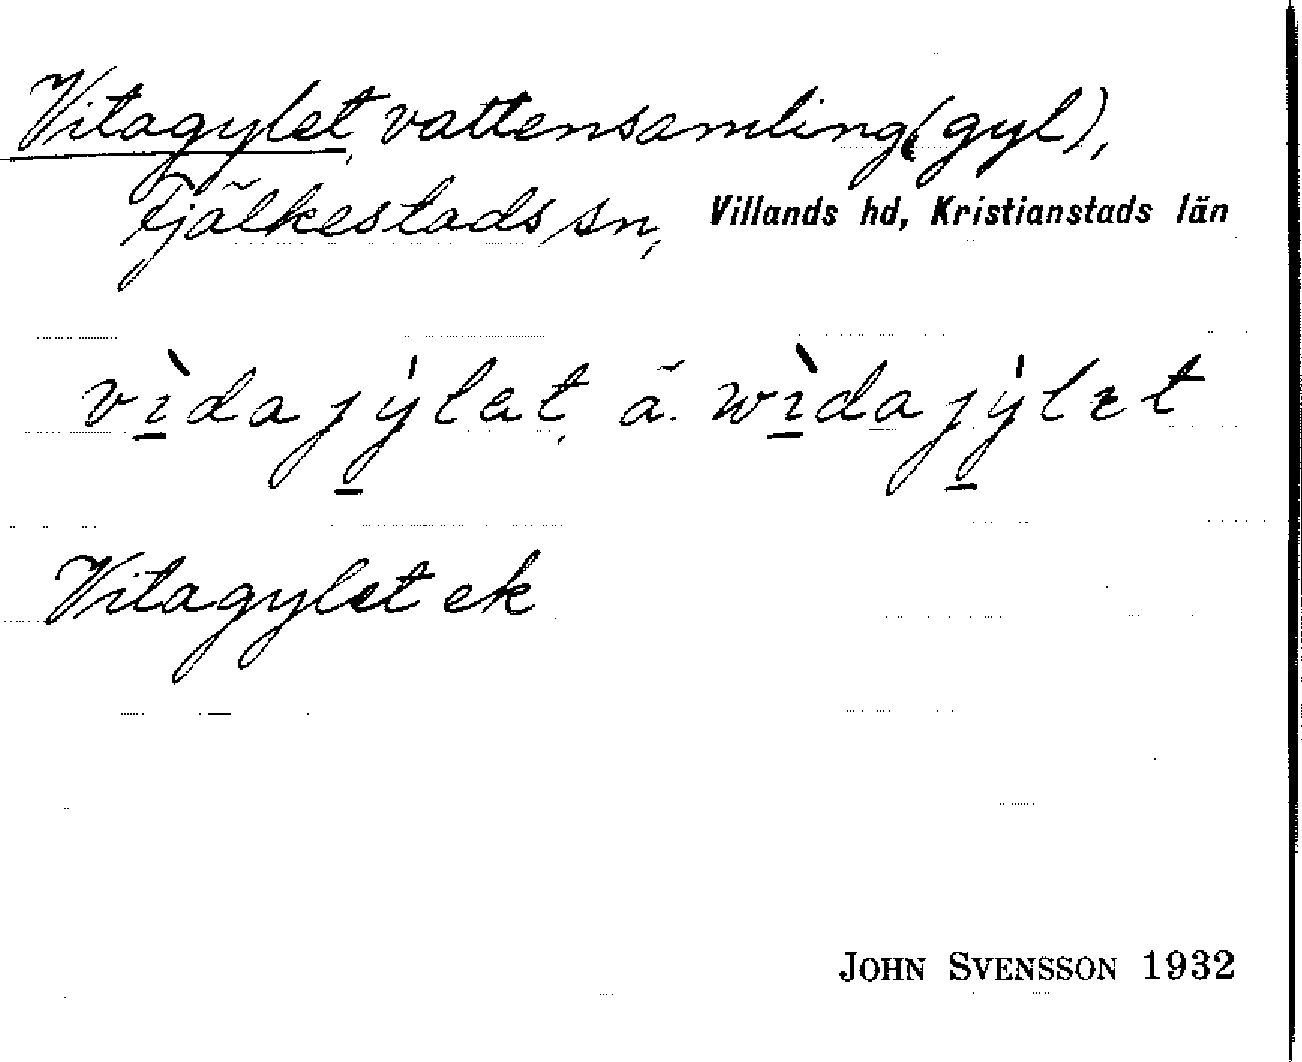 Vitagylet, vattensamling (gyl),
Fjälkestads sn, Villands hd, Kristianstads län
vìdajýlət, ä. wìdajýlət
Vitagylet ek
JOHN SVENSSON 1932